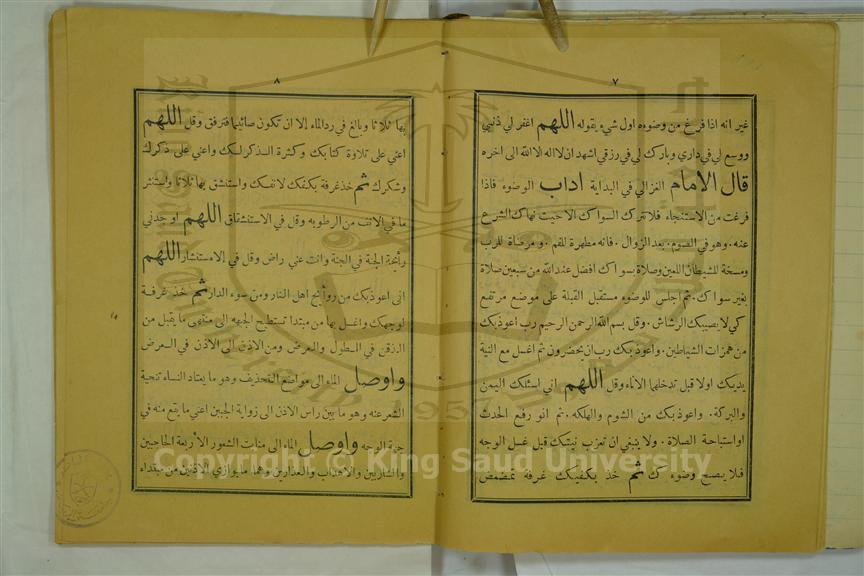 ٧
غير انه اذا فرغ من وضوءه اول شيء يقوله اللهم اغفر لي ذنبي
ووسع لي في داري وبارك لي في رزقي اشهد ان لا اله الا الله الى اخره
قال الامام الغزالي في البداية اداب الوضوء فاذا
فرغت من الاستنجاء فلا تترك السواك الا حيث نهاك الشرع
عنه . وهو في الصوم . بعد الزوال . فانه مطهرة للفم . ومرضاة للرب
ومسخة للشيطان اللعين وصلاة بسواك افضل عند الله من سبعين صلاة
بغير سواك . ثم اجلس للوضوء مستقبل القبلة على موضع مرتفع
كي لا يصيبك الرشاش . وقل بسم الله الرحمن الرحيم رب اعوذ بك
من همزات الشياطين . واعوذ بك رب ان يحضرون ثم اغسل مع النية
يديك اولا قبل تدخلهما الاناء وقل اللهم اني اسئلك اليمن
والبركة . واعوذ بك من الشوم والهلكه . ثم انو رفع الحدث
او استباحة الصلاة . ولا ينبغي ان تعزب نيتك قبل غسل الوجه
فلا يصح وضوءك ثم خذ بكفيك غرفة تمضمض
٨
بها ثلاثا وبالغ في رد الماء الا ان تكون صائما فترفق وقل اللهم
اعني على تلاوة كتابك وكثرة الذكر لك واعني على ذكرك
وشكرك ثم خذ غرفة بكفك لانفك واستنشق بها ثلاثا واستنثر
ما في الانف من الرطوبه وقل في الاستنشقاق اللهم اوجدني
رائحة الجنة في الجنة وانت عني راض وقل في الاستنشار اللهم
انى اعوذ بك من روايح اهل النار ومن سوء الدار ثم خذ غرفة
لوجهك واغسل بها من مبتدا تسطيح الجبهه الى منتهى ما يقبل من
الذقن في الطول والعرض ومن الاذن الى الاذن في العرض
واوصل الماء الى مواضع التحذيف وهو ما يعتاد النساء تنحية
الشعر عنه وهو ما بين راس الاذن الى زواية الجبين اعني ما يقع منه في
جهة الوجه واوصل الماء الى منبات الشعور الأربعة الحاجبين
والشاربين والاهداب والعذارين وهما ما يوازي الاذنين من مبتداء
Copyright © King Saud University
1957